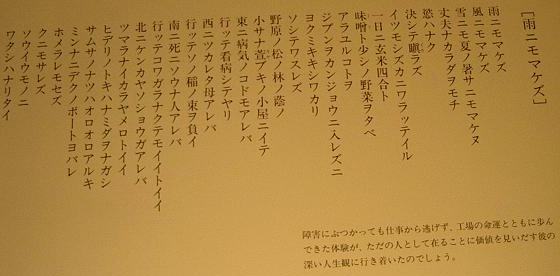 ［雨ニモマケズ］
雨ニモマケズ
風ニモマケズ
雪ニモ夏ノ暑サニモマケヌ
丈夫ナカラダヲモチ
慾ハナク
決シテ瞋ラズ
イツモシズカニワラッテイル
一日ニ玄米四合ト
味噌ト少シノ野菜ヲタベ
アラユルコトヲ
ジブンヲカンジョウニ入レズニ
ヨクミキキシワカリ
ソシテワスレズ
野原ノ松ノ林ノ蔭ノ
小サナ萓ブキノ小屋ニイテ
東ニ病気ノコドモアレバ
行ッテ看病シテヤリ
西ニツカレタ母アレバ
行ッテソノ稲ノ束ヲ負イ
南ニ死ニソウナ人アレバ
行ッテコワガラナクテモイイトイイ
北ニケンカヤソショウガアレバ
ツマラナイカラヤメロトイイ
ヒデリノトキハナミダヲナガシ
サムサノナツハオロオロアルキ
ミンナニデクノボートヨバレ
ホメラレモセズ
クニモサレズ
ソウイウモノニ
ワタシハナリタイ
障害にぶつかっても仕事から逃げず、工場の命運とともに歩ん
できた体験が、ただの人として在ることに価値を見いだす彼の
深い人生観に行き着いたのでしょう。